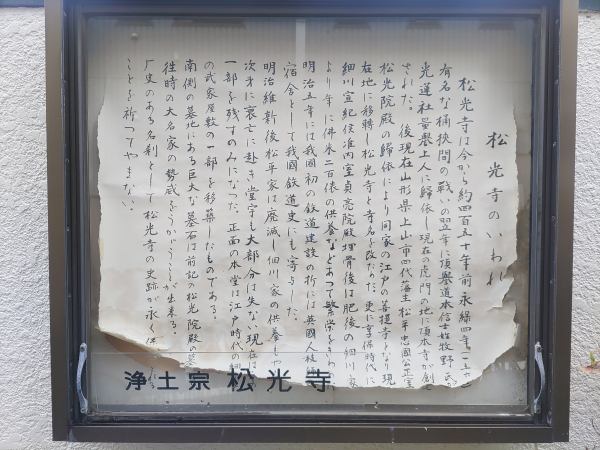 松光寺のいわれ
松光寺は今から約四百五十年前永緑四年
有名な桶狭間の戦いの翌年に頂誉道本信士姓牧野
光蓮社量誉上人に帰依し現在の虎門の地に頂本寺が創
された。後現在山形県上山市四代藩主松平忠国の正室
松光院殿の帰依により同家の江戸の菩提寺となり現
在地に移転し松光寺と寺名を改めた。更に享保時代に
細川宣紀侯准内室貞亮院殿埋骨後は肥後の細川家
より年に佛米二百俵の供養などあって繁栄をきわめ
明治五年には我國初の鉄道建設の折には英國人技師
宿舎として我國鉄道史にも寄与した。
明治維新後松平家は廃滅し細川家の供養もや
次才に衰亡に赴き堂宇も大部分は失ない現在は
一部を残すのみになった。正面の本堂は江戸時代の細
の武家屋敷の一部を移築したものである。
南側の墓地にある巨大な墓石は前記の松光院殿の墓
往時の大名家の勢威をうかがうことが出来る。
歴史のある名刹として松光寺の史跡が永く
ことを祈ってやまない。
浄土宗 松光寺